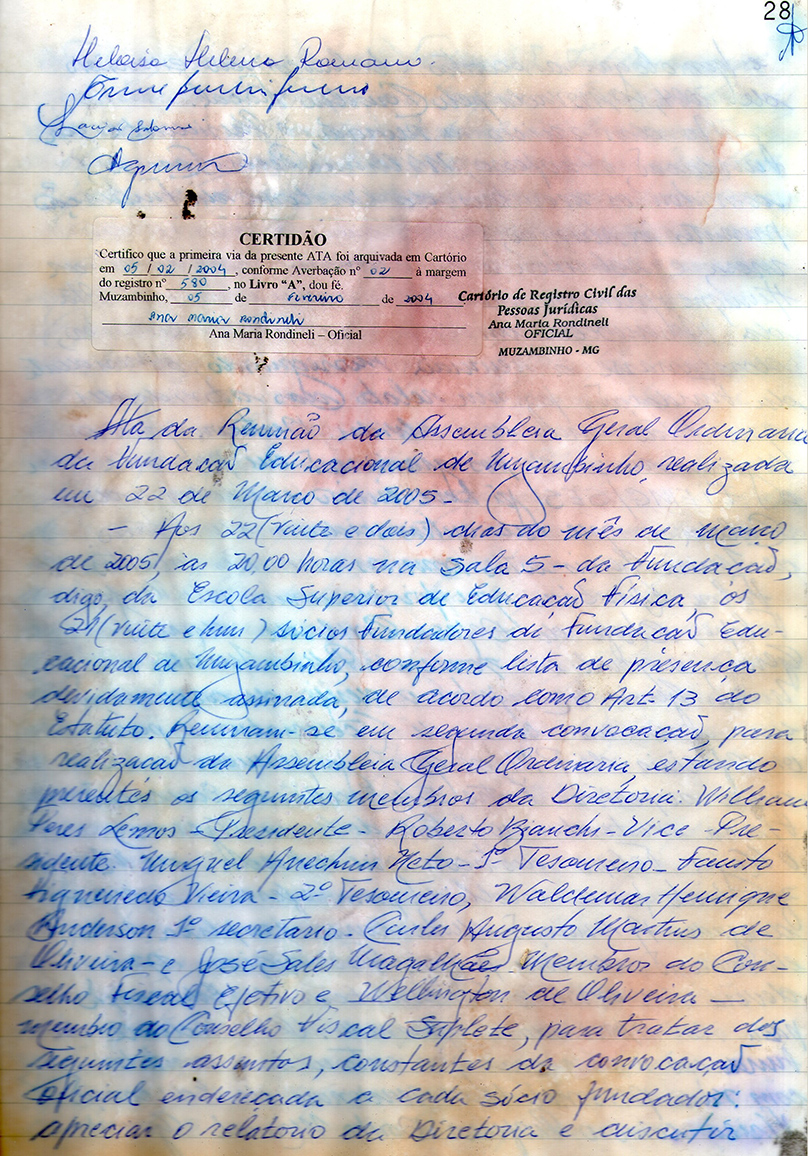 28
Heloisa Helena Romano.
CERTIDÃO
Certifico que a primeira via da presente ATA foi arquivada em Cartório
em 05 / 02 / 2004, conforme Averbação nº 02 à margem
do registro nº 580, no Livro “A”, dou fé.
Muzambinho, 05 de Fevereiro de 2004
Ana Maria Rondineli
Ana Maria Rondineli – Oficial
Cartório de Registro Civil das
Pessoas Jurídicas
Ana Maria Rondineli
OFICIAL
MUZAMBINHO - MG
Ata da Reunião da Assembleia Geral Ordinaria
da Fundação Educacional de Muzambinho, realizada
em 22 de Março de 2005 -
- Aos 22 (vinte e dois) dias do mês de março
de 2005, às 20,00 horas na Sala 5 - da Fundação,
digo, da Escola Superior de Educação Física, os
21 (vinte e hum) sócios Fundadores di Fundação Edu-
cacional de Muzambinho, conforme lista de presença
devidamente assinada, de acordo como Art- 13 do
Estatuto. Reuniram-se em segunda convocação, para
realização da Assembleia Geral Ordinaria, estando
presentes os seguintes membros da Diretoria. William
Peres Lemos - Presidente - Roberto Bianchi - Vice - Pre-
sidente. Miguel Anechini Neto - 1º Tesoureiro - Fausto
Figueiredo Vieira - 2º Tesoureiro, Waldemar Henrique
Anderson 1º secretario - Carlos Augusto Martins de
Oliveira - e José Sales Magalhães Membros do Con-
selho Fiscal Efetivo e Wellington de Oliveira -
membro do Conselho Fiscal Suplete, para tratar dos
seguintes assuntos, constantes da convocação
oficial endereçada a cada sócio fundador:
apreciar o relatório da Diretoria e discutir